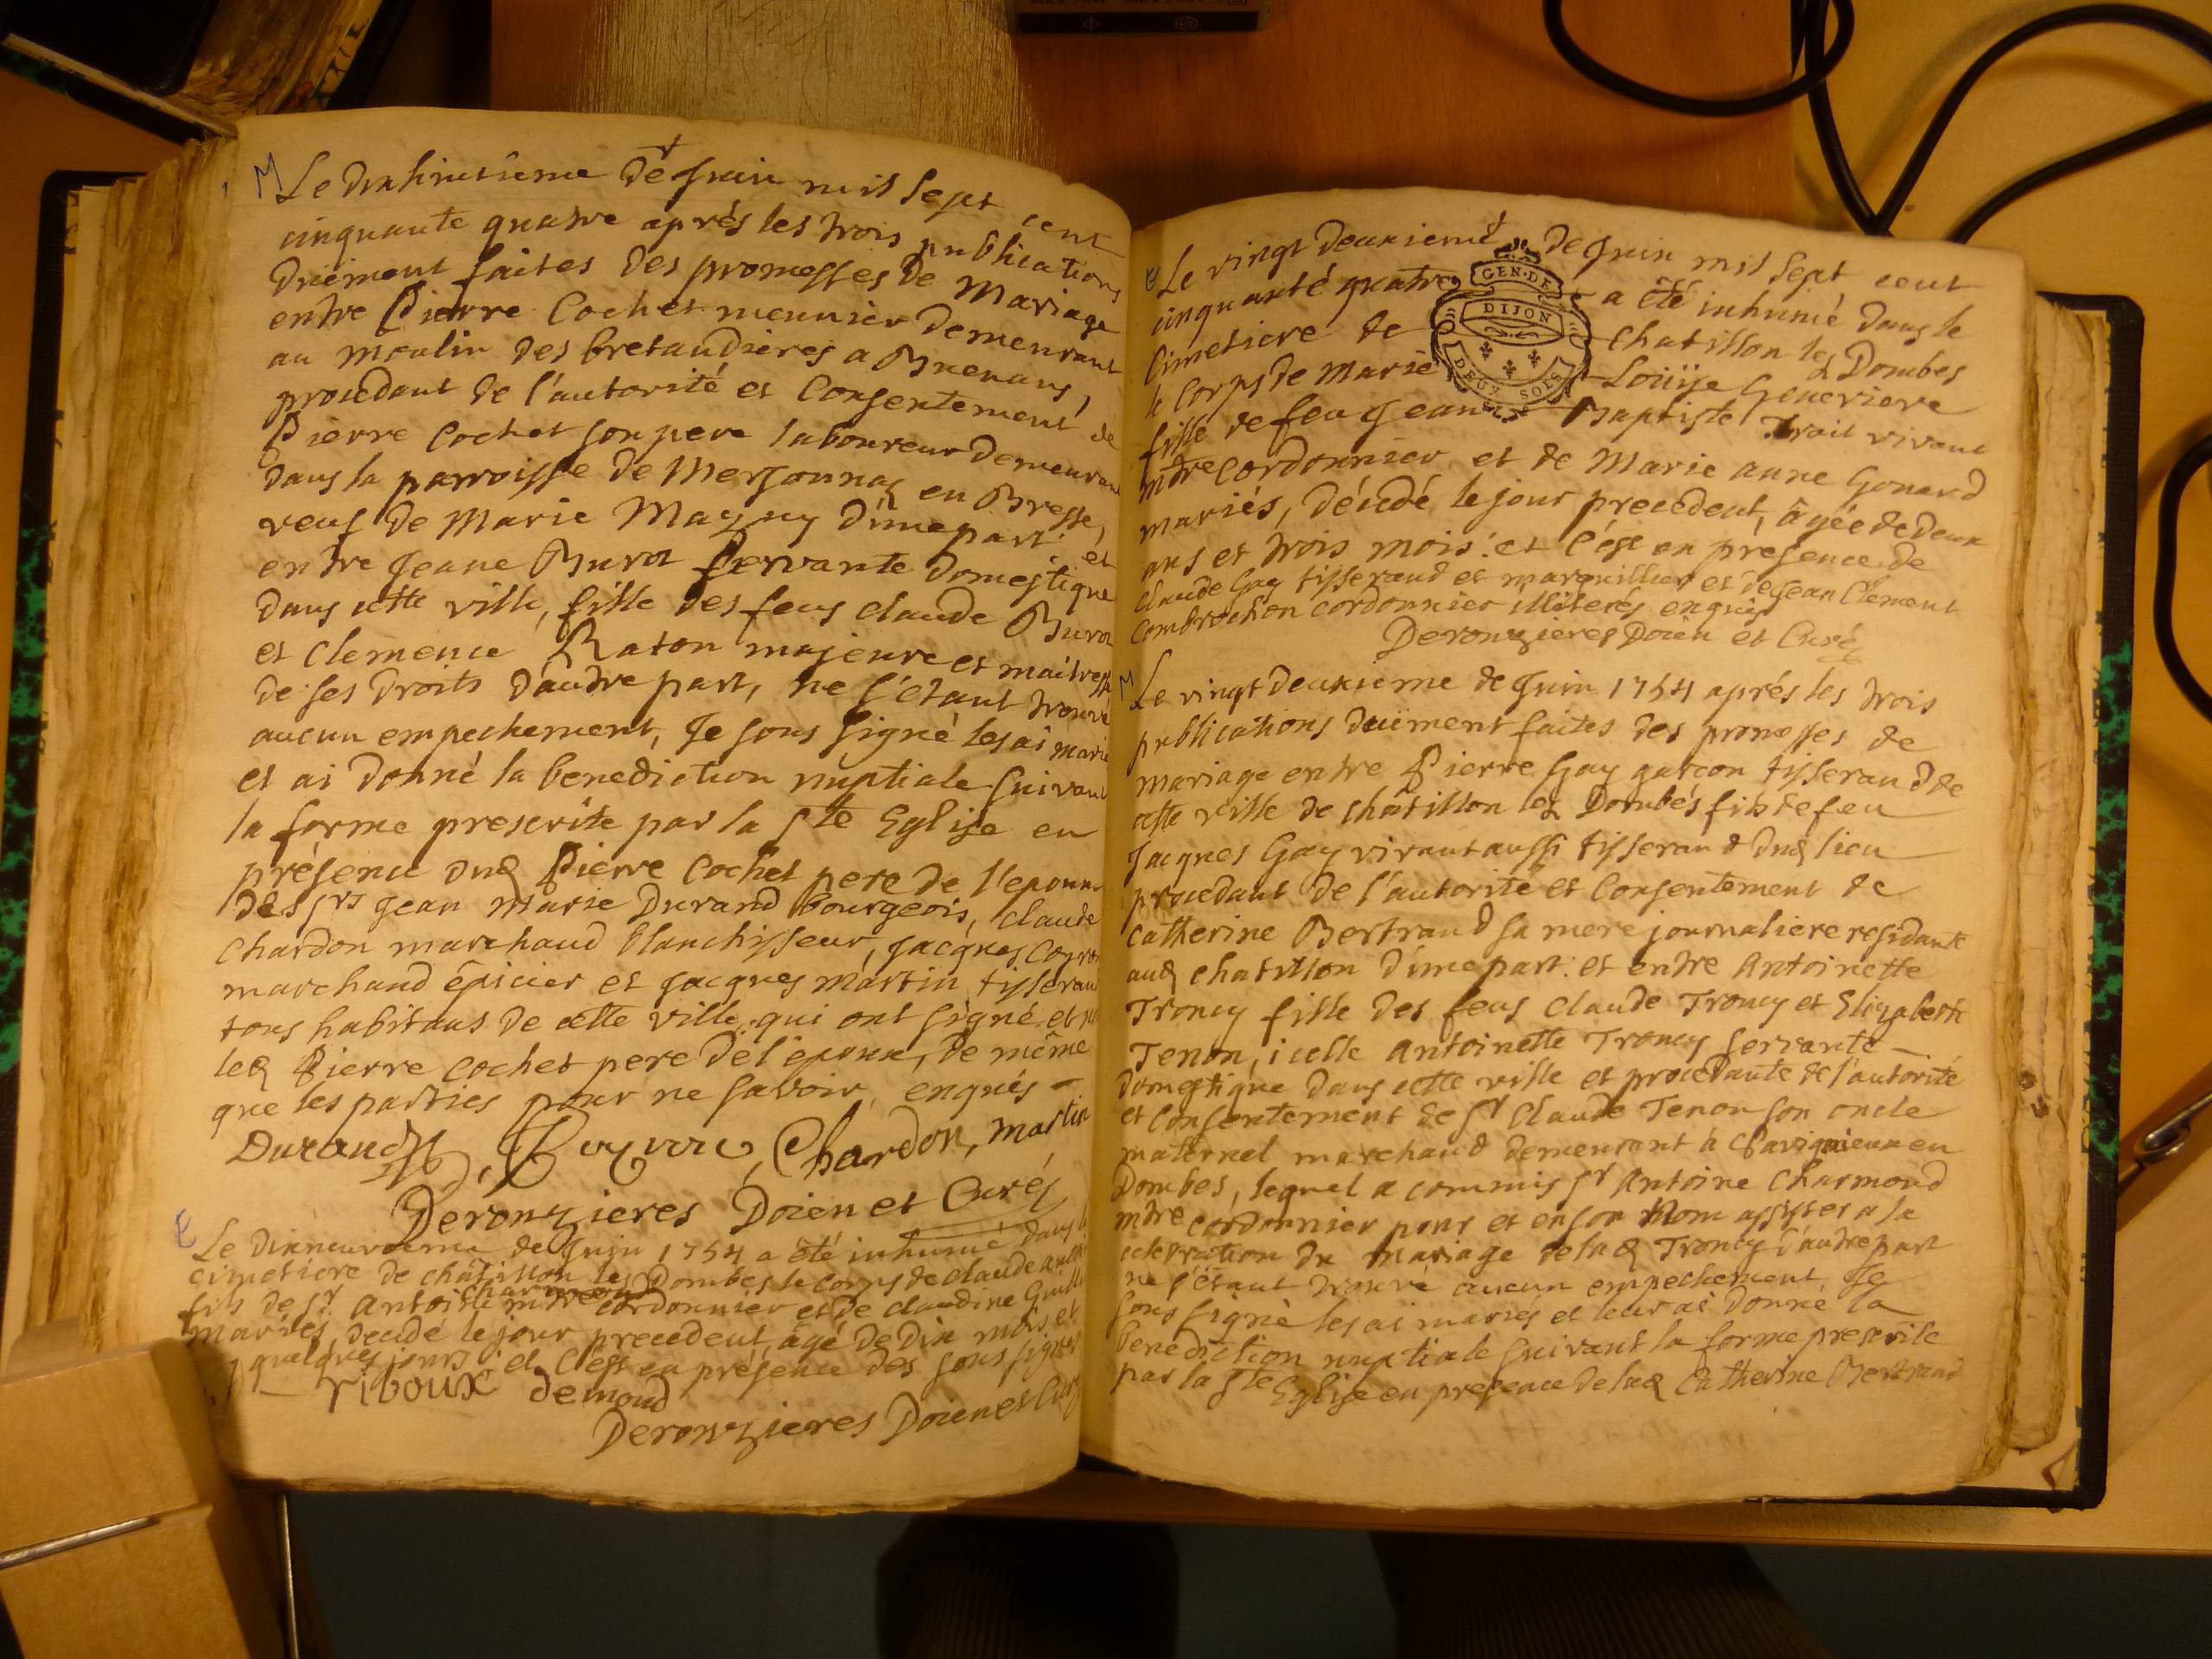 M Le dixhuitième de Juin mil sept cent
cinquante quatre après les trois publications
düement faites des promesses de Mariage
entre Pierre Cochet meunier demeurant
au moulin des bretaudières a
procedant de l'autorité et Consentement de
Pierre Cochet son pere laboureur demeurant
dans la parroisse de Mersonnas en Bresse,
veuf de Marie d'une part: et
entre Jeane servante domestique
dans cette ville, fille des feus claude
et Clemence Raton majeure et maitresse
de ses droits d'autre part, ne s'étant trouvé
aucun empechement, Je sous signé les ai marié
et ai donné la benediction nuptiale suivant
la forme prescrite par la Ste Eglise en
présence dud Pierre Cochet pere de l'epoux
des srs Jean Marie Durand bourgeois, claude
Chardon marchand blanchisseur, Jacques
marchand épicier et Jacques Martin tisserand
tous habitans de cette ville, qui ont signé et
led Pierre Cochet pere de l'époux, de même
que les parties pour ne savoir, enquis -
Durand, Chardon, martin
Derouzieres Doien et Curé
E Le dixneuvieme de Juin 1754 a été inhumé dans le
cimetiere de chatillon les Dombes le corps de claude
fils de sr. Antoine mtre cordonnier et de claudine
mariés, decedé le jour precedent, agé de dix mois et
quelques jours: et c'est en présence des sous signés
riboux demond
Derouzieres Doien et Curé
E Le vingt deuxieme de Juin mil sept cent
cinquante quatre a été inhumé dans le
Cimetiere de Chatillon les Dombes
le Corps de Marie Loüise Genevieve
fille de feu Jean Baptiste Trait vivant
mtre cordonnier et de Marie anne Gonard
mariés, décédé le jour precedent, âgée de deux
ans et trois mois: et c'est en présence de
claude Gay tisserand et marguillier et de Jean Clement
Combrochon cordonnier illiterés enquis
Derouzieres Doien et Curé
M Le vingt deuxieme de Juin 1754 après les trois
publications düement faites des promesses de
mariage entre Pierre Gay garçon tisserand de
cette ville de châtillon les Dombés fils de feu
Jacques Gay vivant aussi tisserand dud lieu
procedant de l'autorité et Consentement de
Catherine Bertrand sa mere journaliere residante
aud chatillon d'une part: et entre Antoinette
Troncy fille des feus Claude Troncy et Elizabeth
Tenon, icelle Antoinette Troncy servante
domestique dans cette ville et procedante de l'autorité
et Consentement de sr Claude Tenon son oncle
maternel marchand demeurant à en
Dombes, lequel a commis sr Antoine Charmond
mtre cordonnier pour et en son Nom assister a la
celebration du Mariage de lad Troncy d'autre part
ne s'étant trouvé aucun empechement, Je
sous signé les ai mariés et leur ai donné la
benediction nuptiale suivant la forme prescrite
par la Ste Eglise en presence de lad Catherine Bertrand
GEN. DE
DIJON
DEUX SOLS